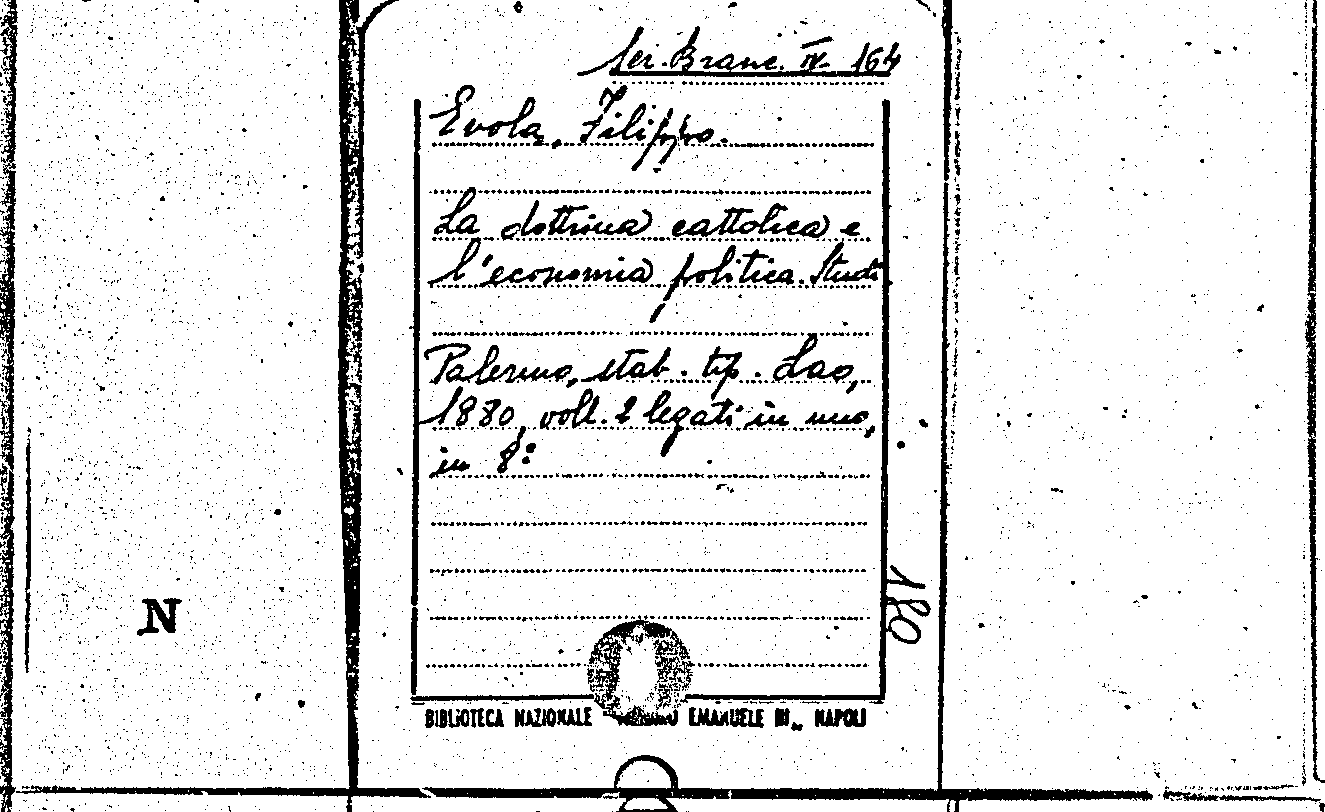 Sei. Branc. IV. 164
Evola, Filippo.
La dottrina cattolica e
l'economia politica. Studi
Palermo, stab. tip. Lao,
1880, voll. 2 legati in uno,
in 8:
180
N
BIBLIOTECA NAZIONALE EMANUELE III„ NAPOLI